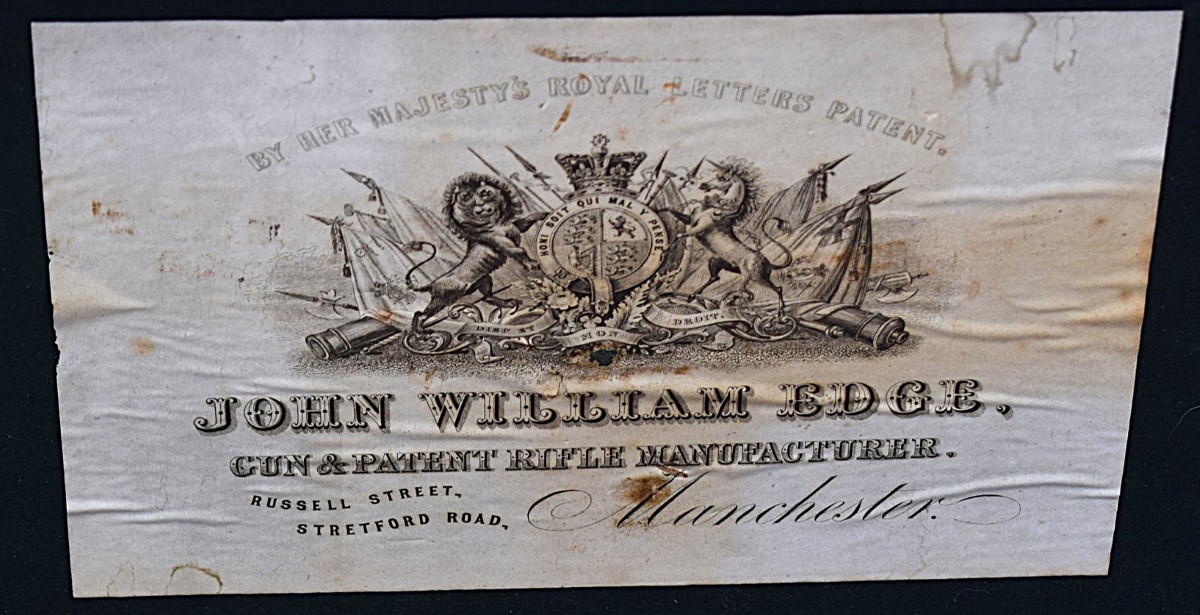 BY HER MAJESTY'S ROYAL LETTERS PATENT.
HONI SOIT QUI MAL Y PENSE
DIEU ET MON DROIT.
JOHN WILLIAM EDGE,
GUN & PATENT RIFLE MANUFACTURER.
RUSSELL STREET,
STRETFORD ROAD,
Manchester.